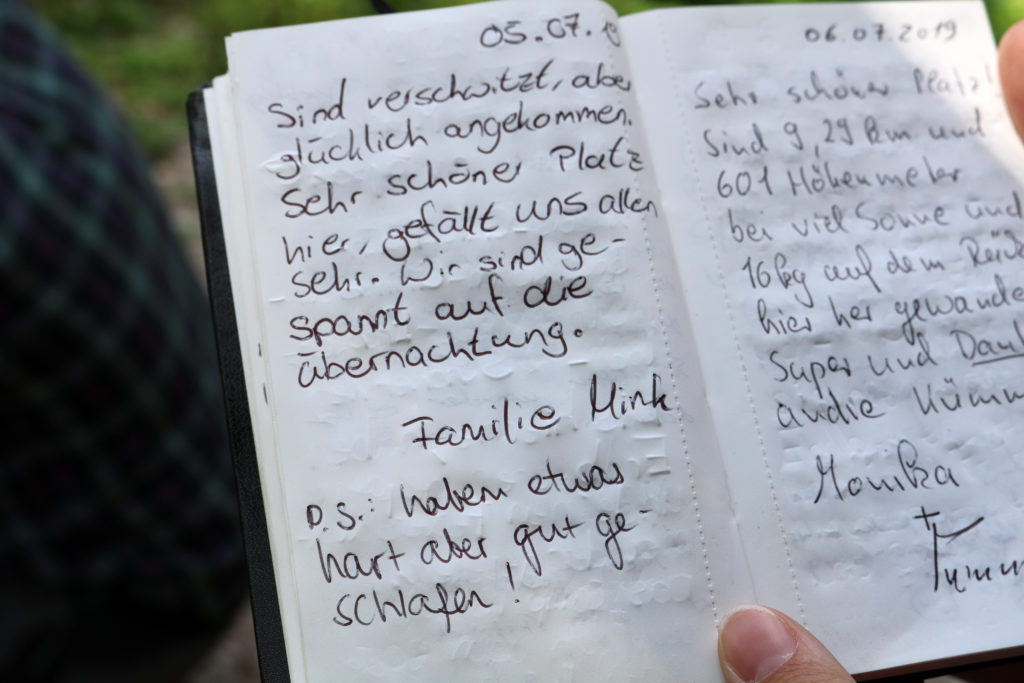 05.07.19
Sind verschwitzt, aber
glücklich angekommen.
Sehr schöner Platz
hier, gefällt uns allen
sehr. Wir sind ge-
spannt auf die
übernachtung.
Familie Mink
P.S.: haben etwas
hart aber gut ge-
schlafen!
06.07.2019
Sehr schöner Platz!
Sind 9,29 km und
601 Höhenmeter
bei viel Sonne und
16kg auf dem
hier her
Super und
an die
Monika
+